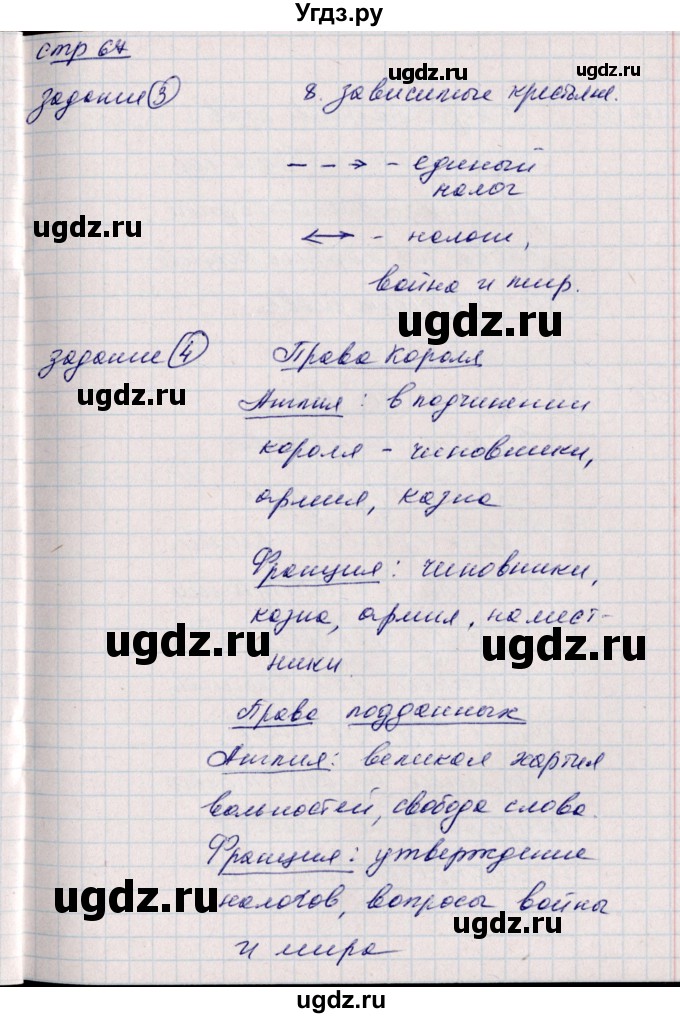 Угдз.ру
стр 64
ugdz.ru
задание 3
8. зависимые крестьяне.
ugdz.ru
- единый
налог
ugdz.ru
- налоги,
война и мир.
ugdz.ru
задание 4
Права короля
ugdz.ru
Англия: в подчинении
короля - чиновники,
армия, казна
Франция: чиновники,
казна, армия, намест-
ники
ugdz.ru
ugdz.ru
Права подданных
Англия: великая хартия
вольностей, свобода слова.
Франция: утверждение
налогов, вопросы войны
ugdz.ru
ugdz.ru
и мира
ugdz.ru